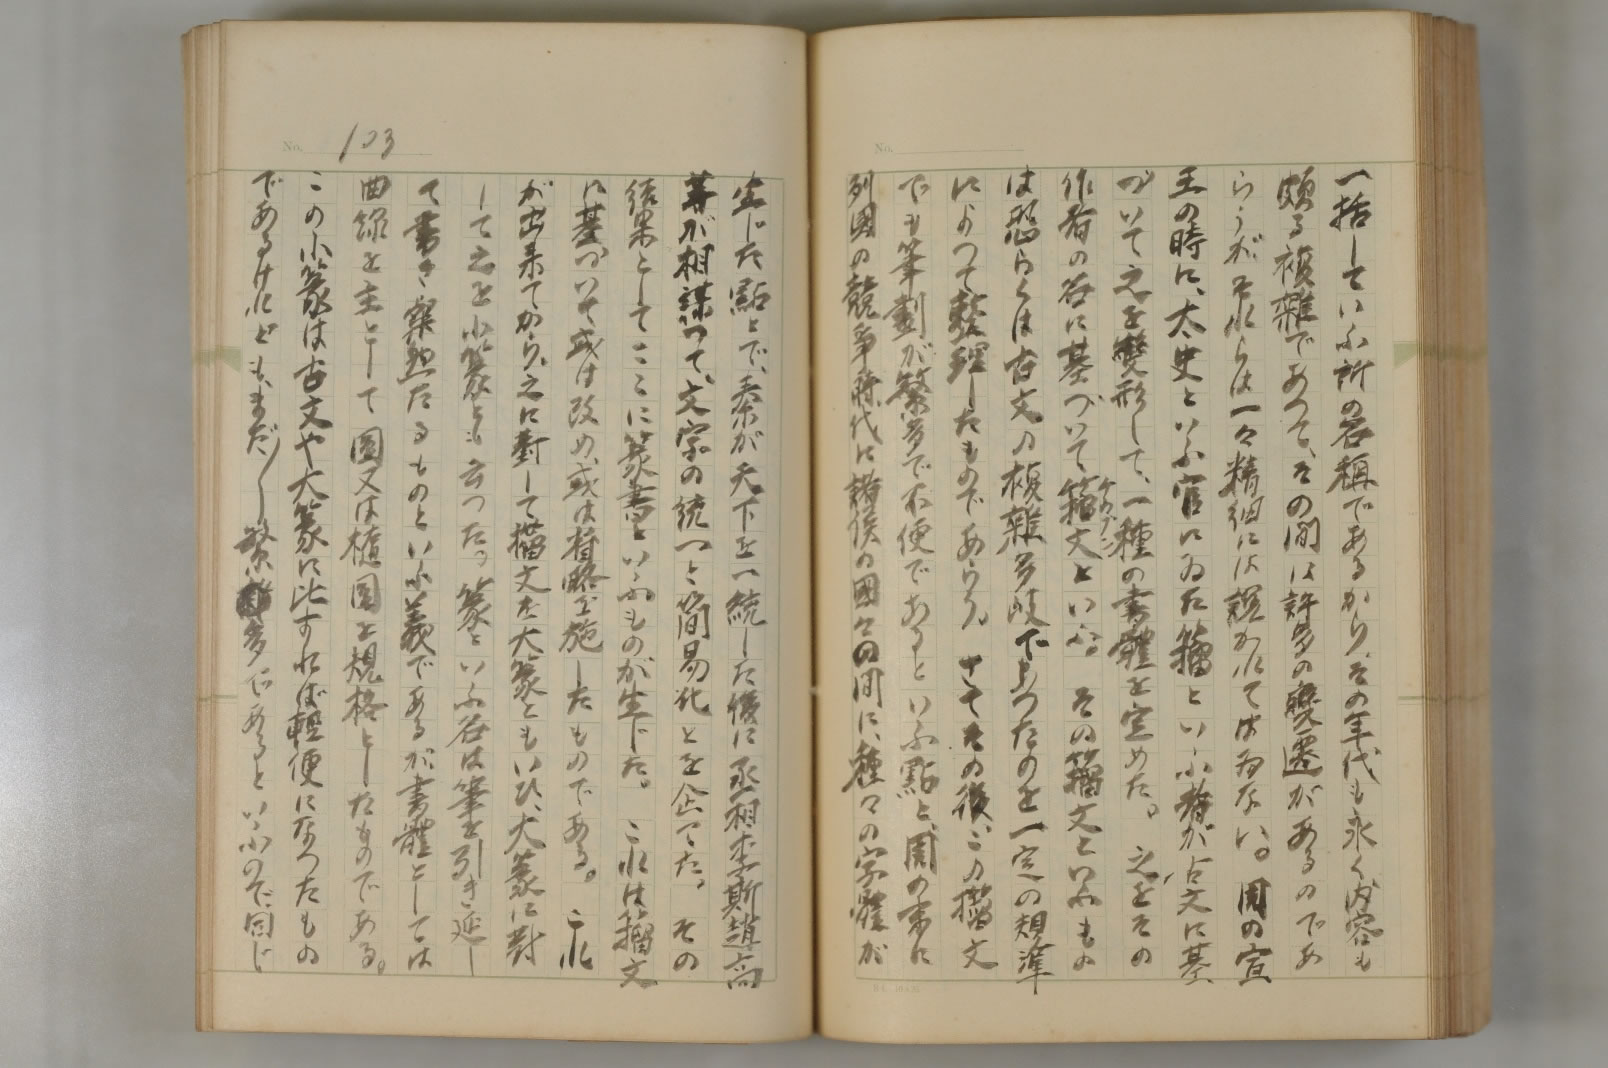 No.
一括していふ所の名称であるから、その年代も永く内容も
頗る複雑であつて、その間には許多の変遷があるのであ
らうが、それらは一々精細には説かれてはゐない。周の宣
王の時に、太史といふ官にゐた籀といふ者が、古文に基
づいて之を變形して、一種の書體を定めた。之をその
作者の名に基づいて籀文といふ。その籀文といふもの
は恐らくは古文の複雑多岐に上つたのを一定の規準
によつて整理したものであらう。さてその後、この籀文
でも筆劃が繁多で不便であるといふ點と、周の末に
列國の競争時代に諸侯の國々の間に、種々の字體が
No. 103
生じた點とで、秦が天下を一統した後に丞相李斯趙高
等が相謀つて、文字の統一と簡易化とを企てた。その
結果としてここに篆書といふものが生じた。これは籀文
に基づいて或は改め、或は省略を施したものである。これ
が出来てから、之に對して籀文を大篆ともいひ、大篆に對
して之を小篆とも云つた。篆といふ名は筆を引き延し
て書き
たるものといふ義であるが、書體としては
曲線を主として圓又は楕圓を規格としたものである。
この小篆は古文や大篆に比すれば輕便になつたもの
であるけれども、まだ／＼繁多であるといふので、同じ